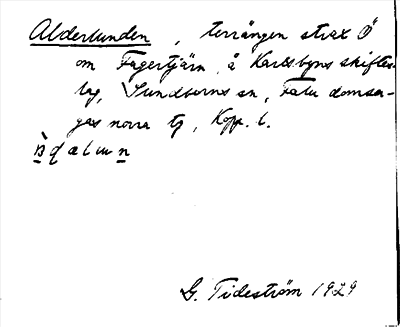 Alderlunden, terrängen strax Ö
om Fagertjärn, å Karlsbyns skiftes-
lag, Sundborns sn, Falu domsa-
gas norra tg, Kopp. l.
G. Tideström 1929